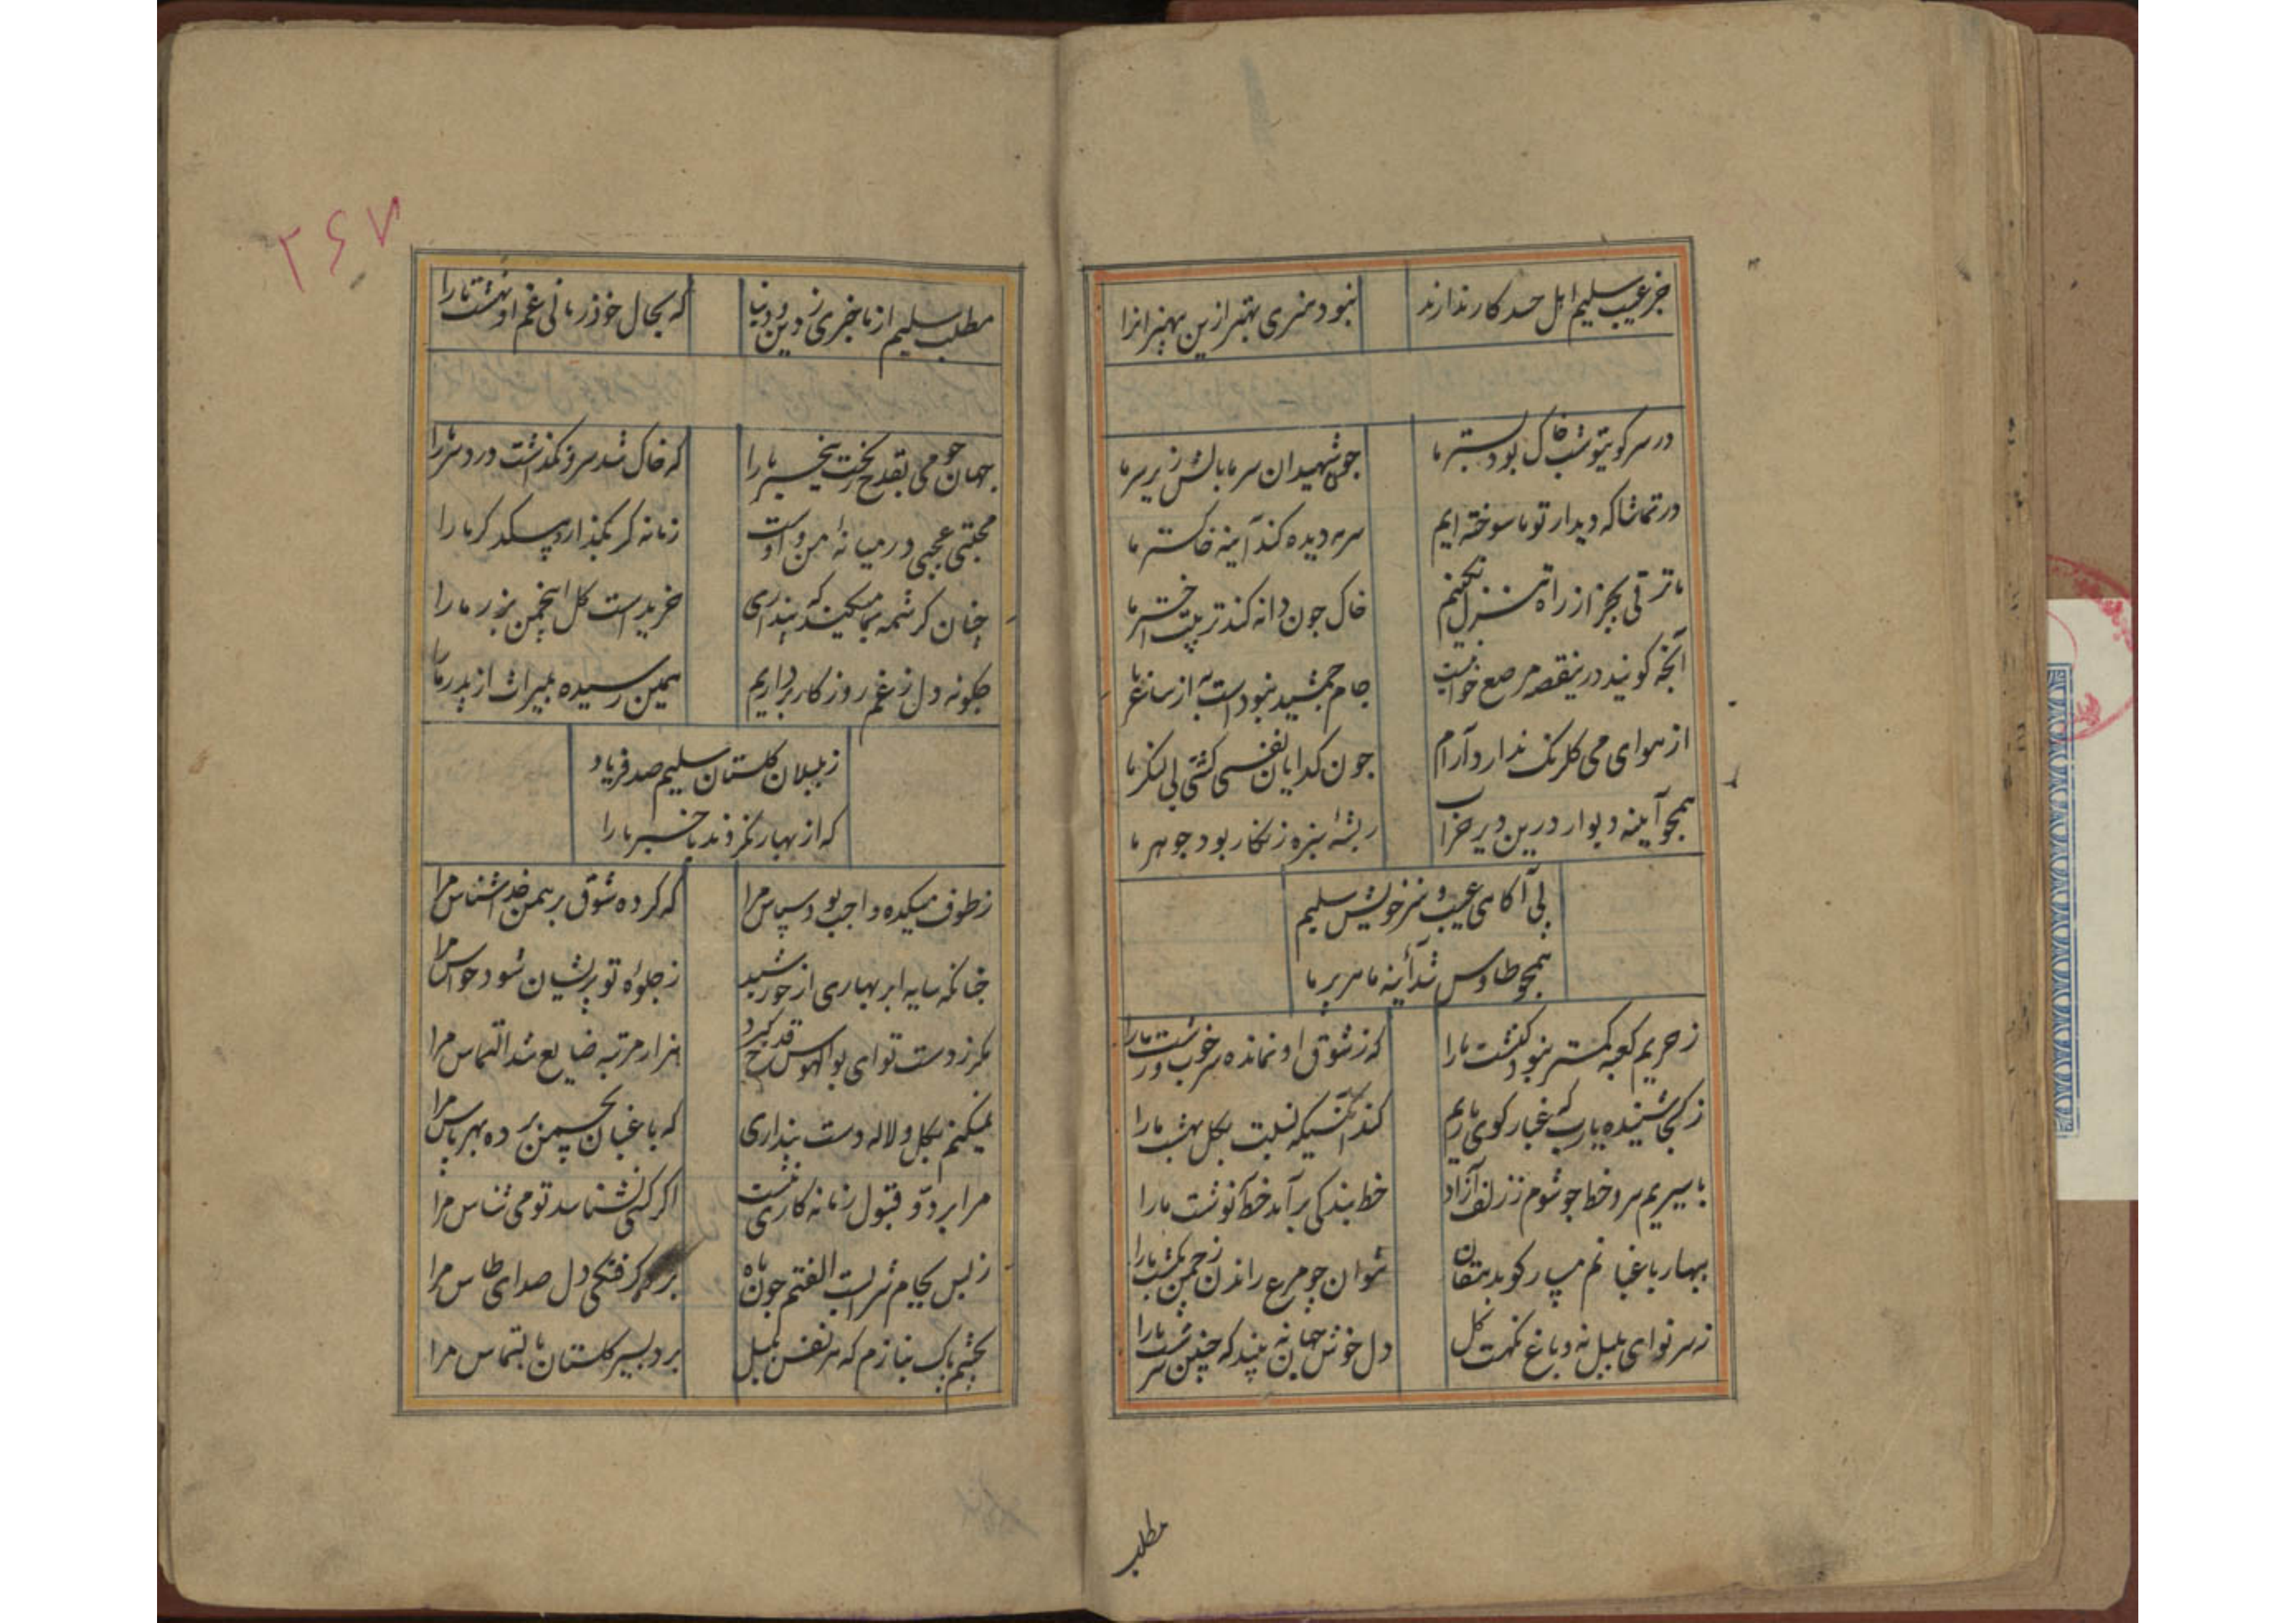 جز عیب سلیم اهل حسد کار ندارند نبود هنری بهتر ازین بیهنرانرا
در سر کویتو شب خاک بود بستر ما جون شهیدان سر ما بالش زیر سر ما
در تماشا که دیدار تو ما سوخته ایم سرمه دیده کند آینه خاکستر ما
ما ترقی بجز از راه تنزل نکنیم خاک جون دانه کند تربیت اختر ما
آنجه کویند درینقصه مرصع خوانیست جام جمشید نبود است به از ساغر ما
از هوای می کلرنک ندارد آرام جون کدایان نفسی کشتی بی لنکر ما
همجو آیینه دیوار درین دیر خراب ریشه سبزه زنکار بود جوهر ما
بی آکاهی عیب و هنر خویش سلیم
همجو طاوس شد آینه ما هر پر ما
ز حریم کعبه کمتر نبود کنشت ما را که ز شوق او نمانده سر خوب و زشت ما را
ز کجا شنیده یارب که غبار کوی یاریم کند آتشیکه نسبت بکل بهشت ما را
با سیریم سر و خط جو شوم ز زلف آزاد خط بندکی بر آمد خط نوشت ما را
بهار باغبانم مسپار کو بدهقان نتوان جو مرغ راندن ز جمن بکشت ما را
نه سر نوای بلبل نه دماغ نکهت کل دل خوش جهان نه بیند که جنین سرشت ما را
مطلب
۲۶۷
مطلب سلیم از ما خبری ز دین و دنیا که بحال خود زمانی غم او نهشت ما را
جهان جو می بقدح ریخت بیخبر ما را که خاک شد سر و نکذشت درد سر ما را
محبتی عجبی در میانه من و اوست زمانه کر بکذارد بیکدکر ما را
جنان کرشمه بما میکنید که بنداری خریده است کل انجمن بزر ما را
جکونه دل ز غم روزکار برداریم همین رسیده بمیراث از پدر ما را
ز بلبلان کلستان سلیم صد فریاد
که از بهار نکردند با خبر ما را
ز طوف میکده واجب بود سپاس مرا که کرده شوق برهمن خدا شناس مرا
جنانکه سایه ابر بهاری از خورشید ز جلوه تو پریشان شود حواس مرا
مکر ز دست تو ای بوالهوس قدح کیرد هزار مرتبه ضایع شد التماس مرا
نمیکنم بکل و لاله دست بنداری که باغبان بجمن برده بهر پاس مرا
مرا برد و قبول زمانه کاری نیست اکر کسی نشناسد تو می شناس مرا
ز بس بجام شرابست الفتم جون ماه برد کرفتکی دل صدای طاس مرا
بجشم پاک بنازم که هر نفس بلبل برد بسیر کلستان بالتماس مرا